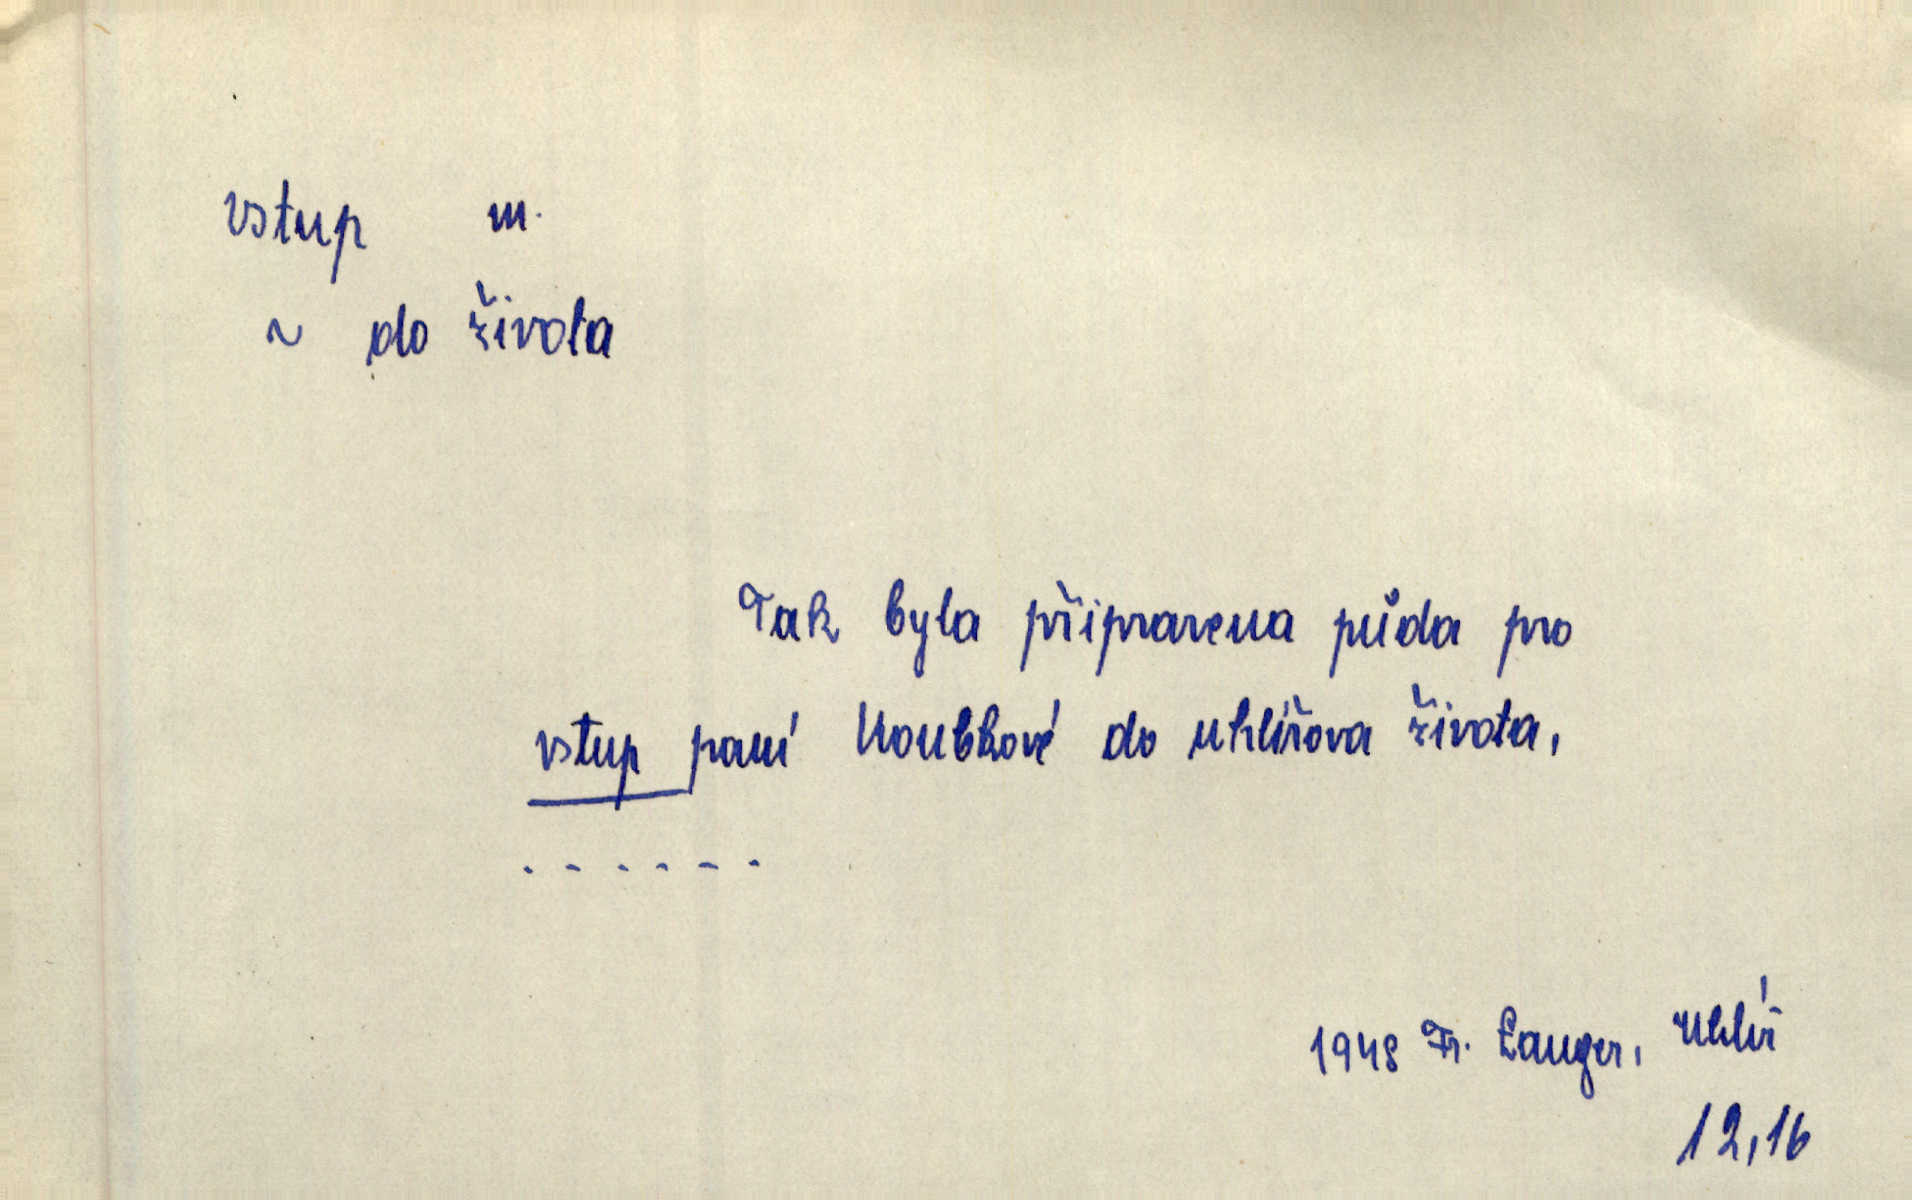 vstup m.
~ do života
Tak byla připravena půda pro
vstup paní Koubkové do uhlířova života,
. - . - - .
1948 Fr. Langer, Uhlíř
12,16